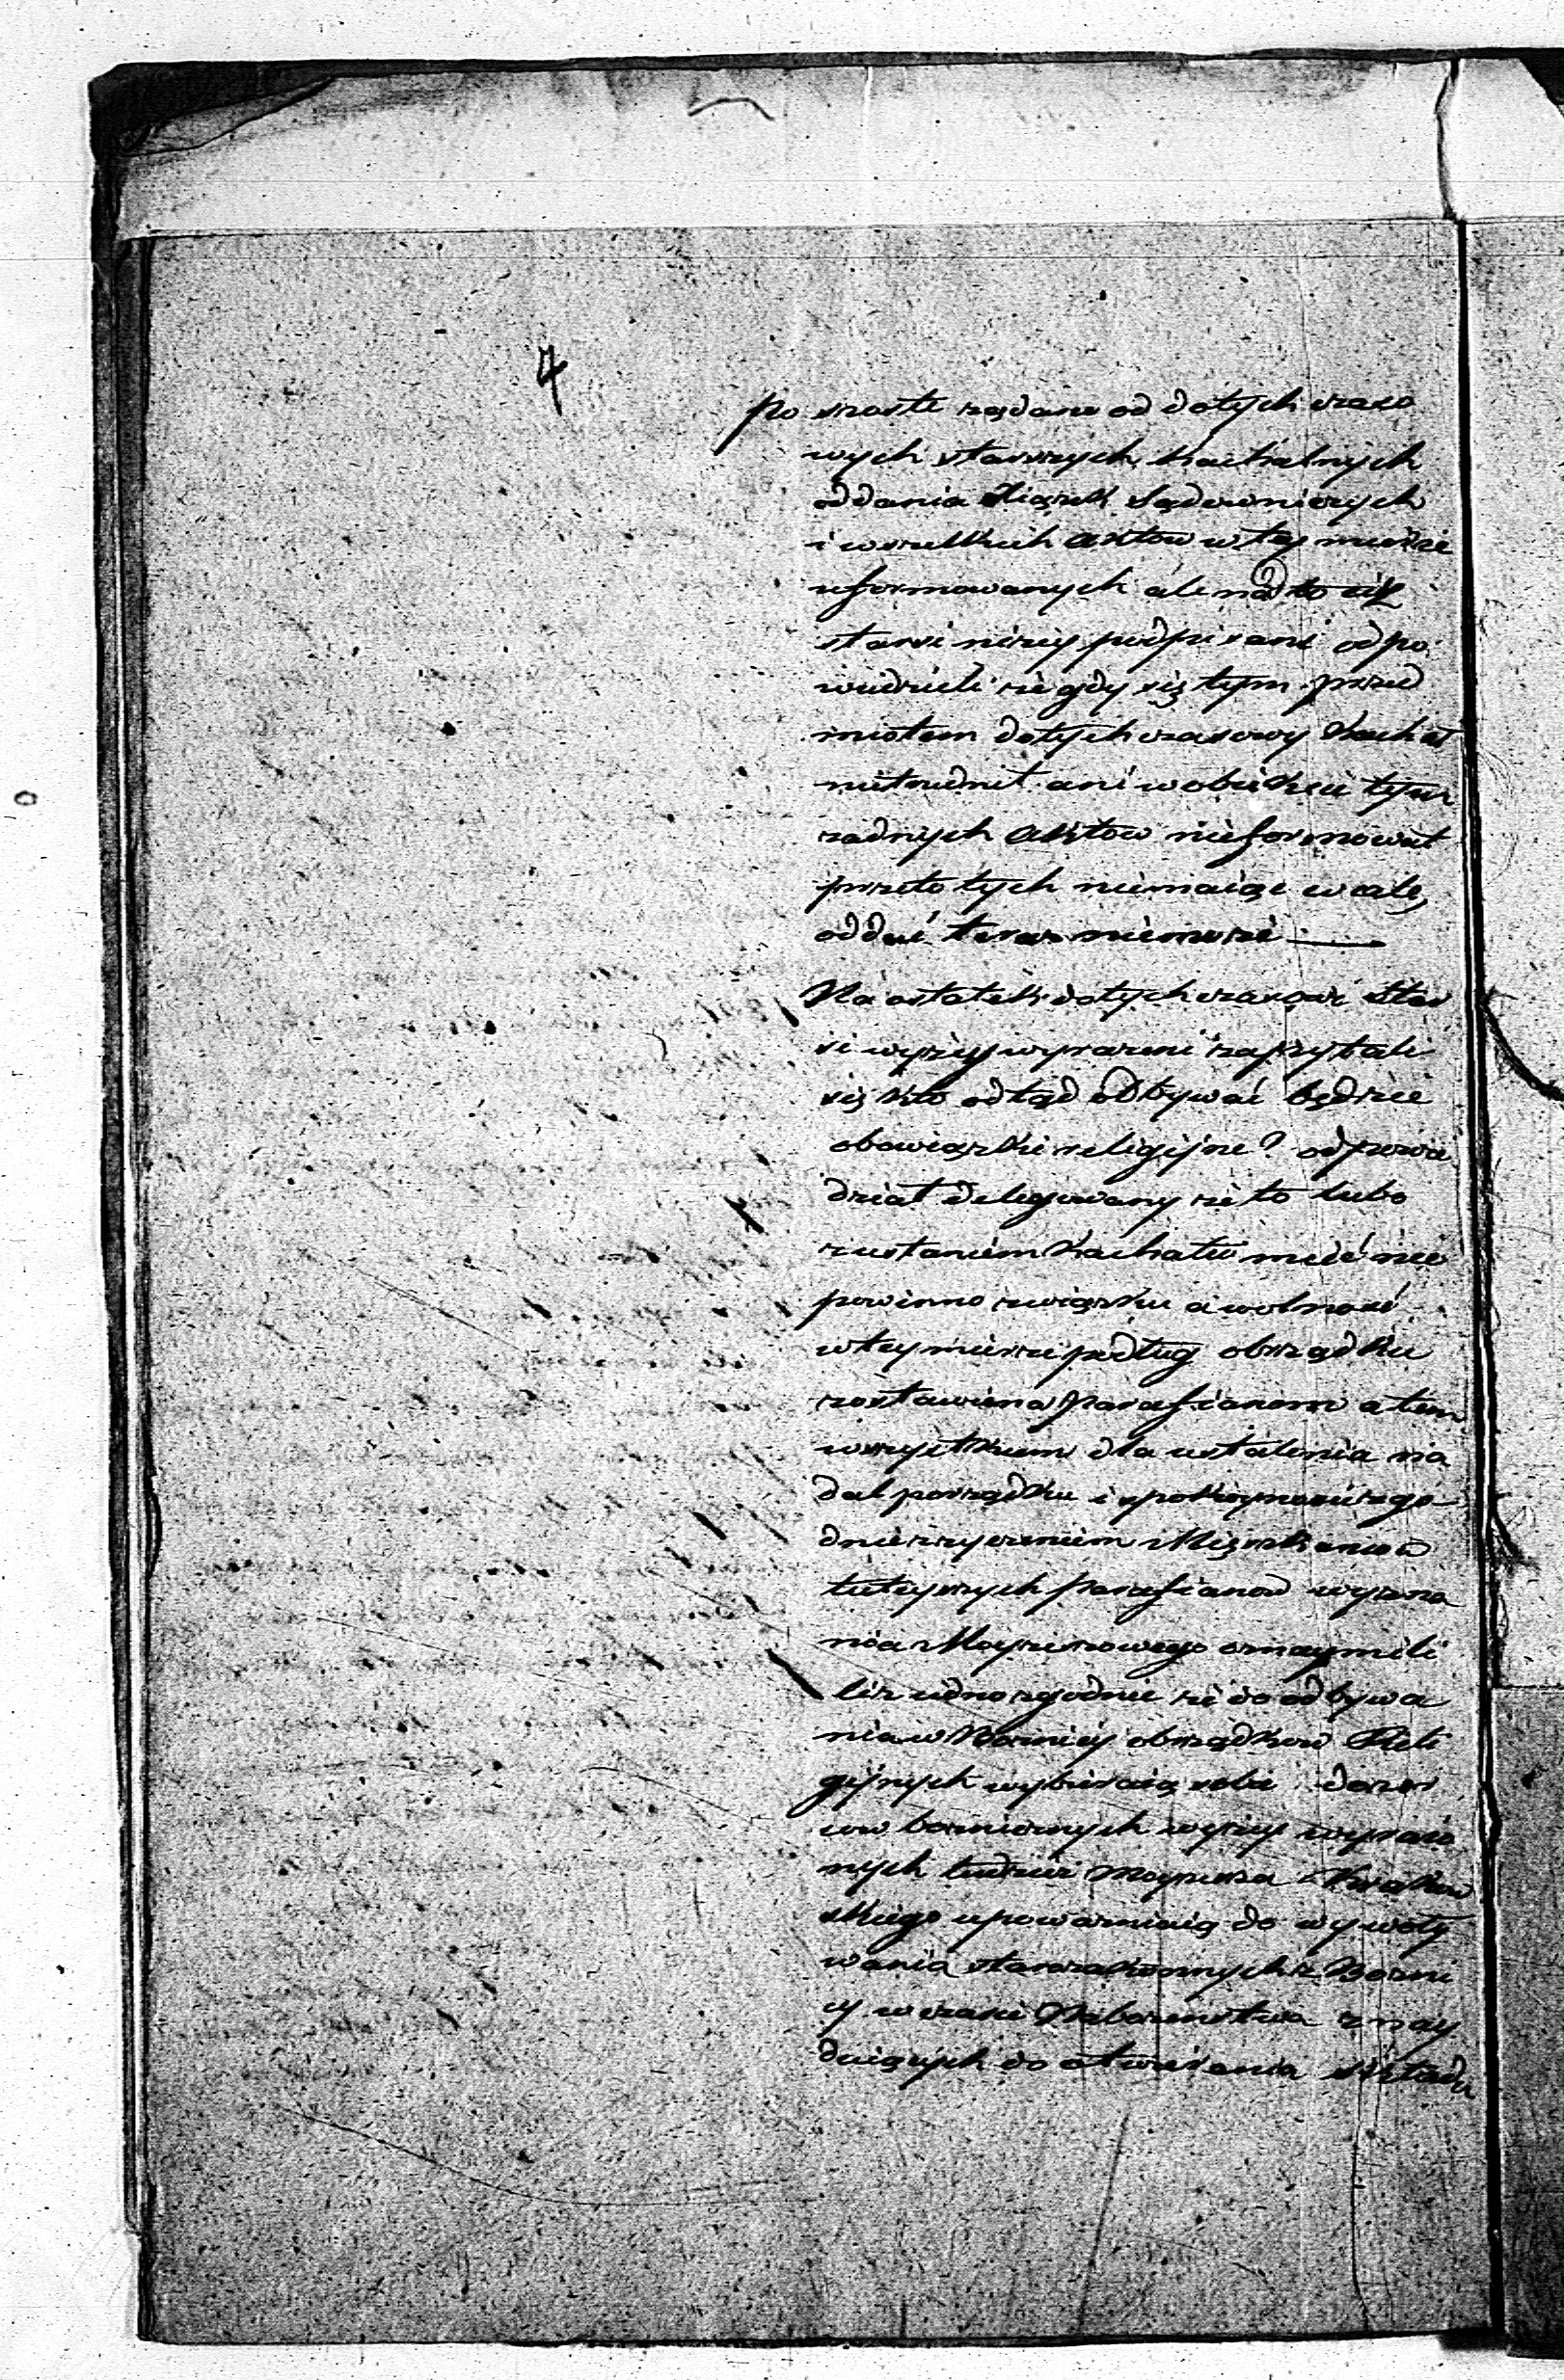 4
po szoste rządano od dotych czaso
wych starszych Kachalnych
oddania Xiążek Sądowniczych
i wszelkich aktow w tey mierze
uformowanych ale na to ciż
starsi niżey podpisani odpo
wiedzieli że gdy się tym przed
miotem dotychczasowy Kachał
nietrudnił ani w obiekcie tym
żadnych aktow nieformował
przeto tych niemaiąc wcale,
oddać teraz niemoże —
Na ostatek dotychczasowi Star
si wyżey wyrażeni zapytali
się kto odtąd odbywać będzie
obowiązki religijne? odpowie
dział delegowany że to lubo
z ustaniem Kachału mieć nie
powinno związku a wolność
w tey mierze podług obrządku
zostawiona Parafianom a tem
wszystkiem dla ustalenia na
dal porządku i spokoyności zgo
dnie z życzeniem Mieszkancow
tuteyszych Parafianow wyzna
nia Moyżeszowego oznaymili
też iednozgodnie że do odbywa
nia w Boźnicy obrządkow Reli
gijnych wybieraią sobie dozor
cow boźnicznych wyżey wyrażo
nych tudzież Moyżesza Krakow
skiego upoważniaią do wywoły
wania starozakonnych z Bożni
cy w czasie Nabożeństwa znay
duiących do otwierania składu